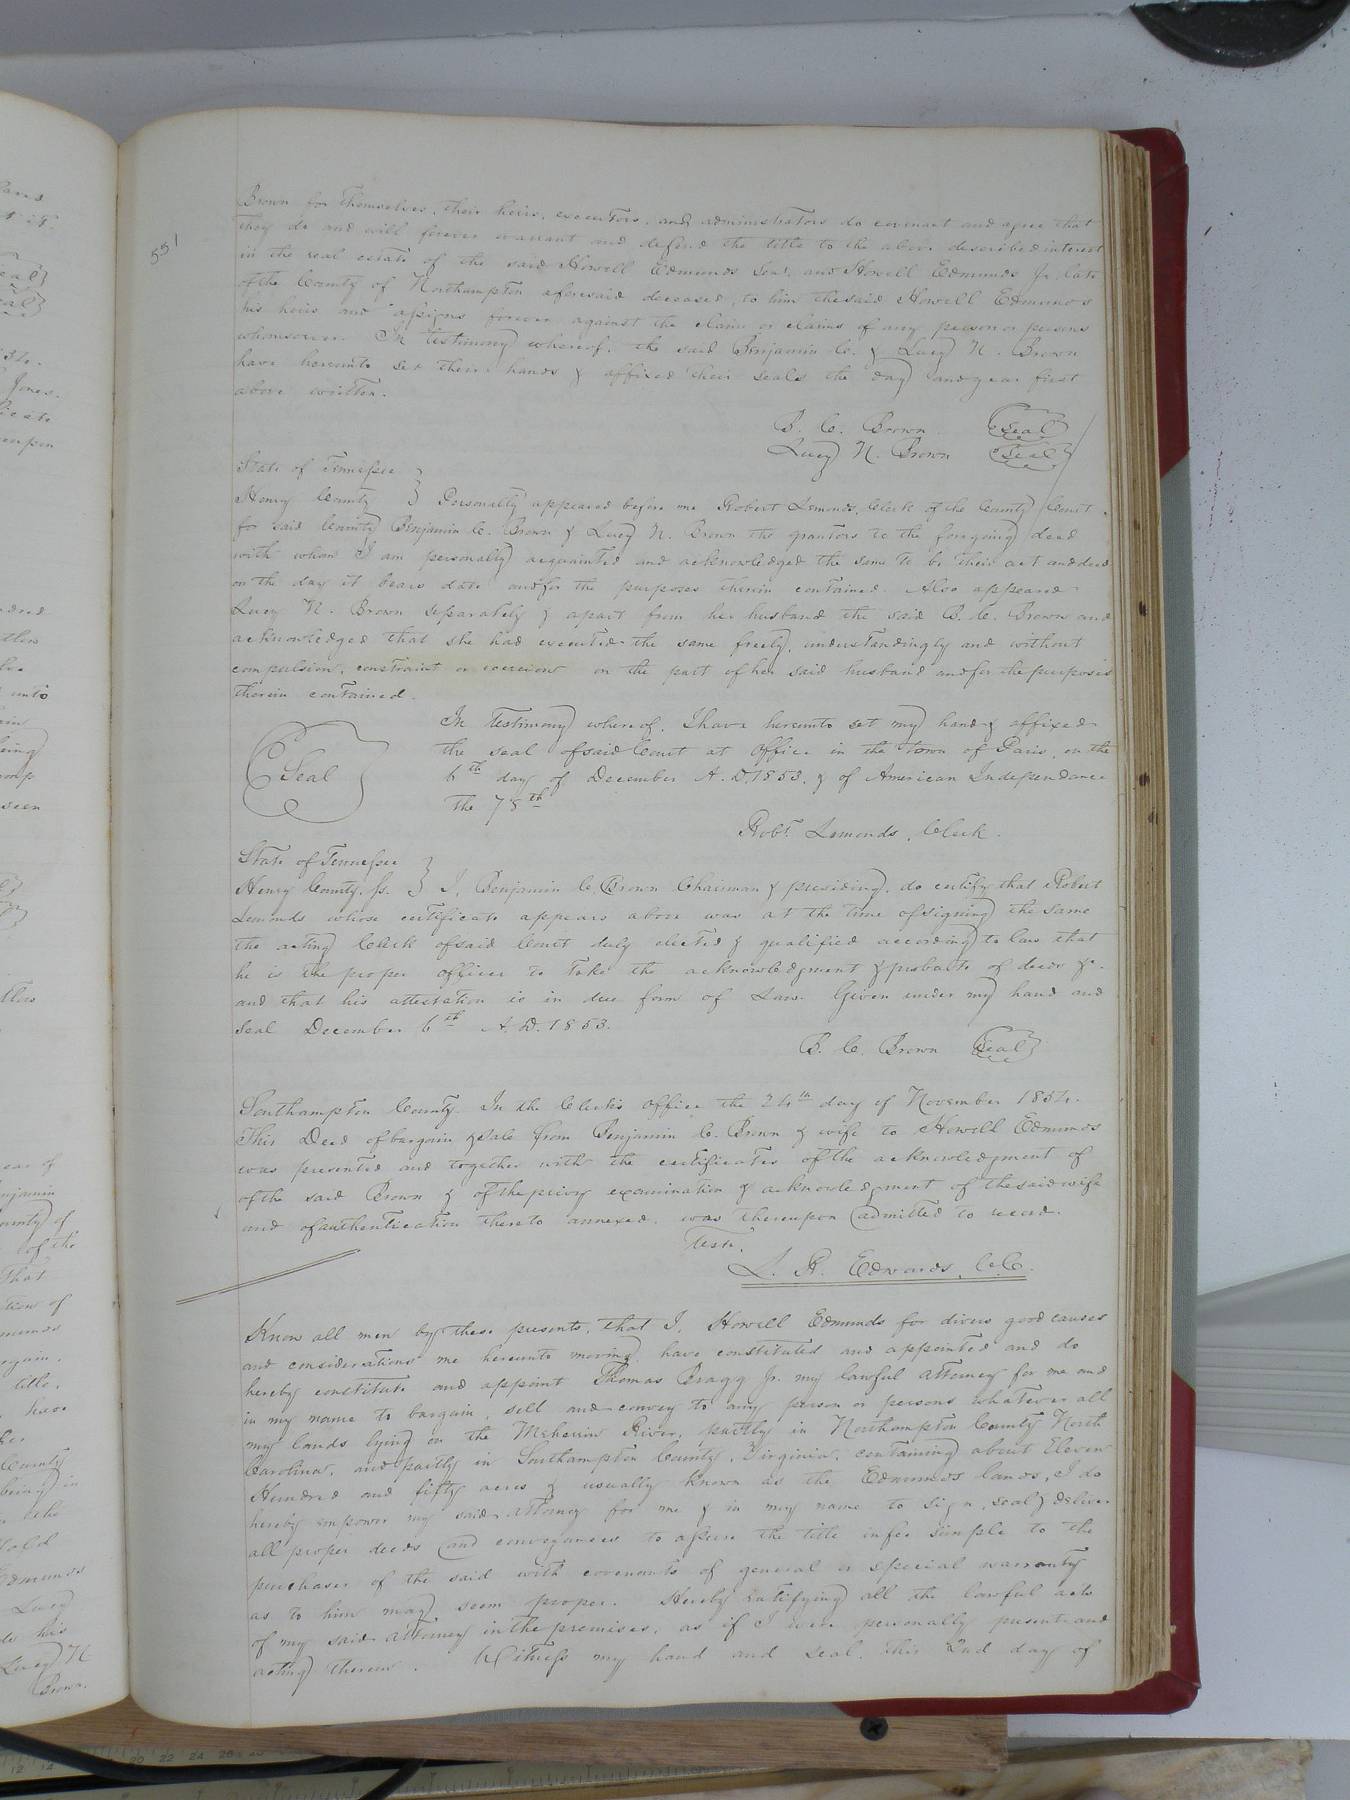 551
Brown for themselves, their heirs, executors, and administrators do covenant and agree that
they do and will forever warrant and defend the title to the above described interest
in the real estate of the said Howell Edmunds Senr. and Howell Edmunds Jr. late
of the County of Northampton aforesaid deceased, to him the said Howell Edmunds
his heirs and assigns forever against the claim or claims of any person or persons
whomsoever. In testimony whereof, the said Benjamin C. & Lucy N. Brown
have hereunto set their hands & affixed their seals the day and year first
above written.
B. C. Brown Seal
Lucy N. Brown Seal
State of Tennessee
Henry County } Personally appeared before me Robert Lemonds, Clerk of the County Court
for said County Benjamin C. Brown & Lucy N. Brown the grantors to the foregoing deed
with whom I am personally acquainted and acknowledged the same to be their act and deed
on the day it bears date and for the purposes therein contained. Also appeared
Lucy N. Brown seperately & apart from her husband the said B. C. Brown and
acknowledged that she had executed the same freely, understandingly and without
compulsion, constraint or coercion on the part of her said husband and for the purposes
therein contained.
In testimony whereof, I have hereunto set my hand & affixed
the seal of said Court at office in the town of Paris, on the
Seal
6th day of December A.D. 1853, & of American Independence
the 78th
Robt. Lemonds, Clerk.
State of Tennessee
Henry County, Ss. } I, Benjamin C. Brown Chairman & presiding, do certify that Robert
Lemonds whose certificate appears above was at the time of signing the same
the acting Clerk of said Court duly elected & qualified according to law that
he is the proper officer to take the acknowledgment & probate of deeds &c.
and that his attestation is in due form of Law. Given under my hand and
seal December 6th A.D. 1853.
B. C. Brown Seal
Southampton County. In the Clerk's office the 24th day of November 1854.
This Deed of bargain & sale from Benjamin C. Brown & wife to Howell Edmunds
was presented and together with the certificates of the acknowledgment of
of the said Brown & of the privy examination & acknowledgment of the said wife
and of authentication thereto annexed, was thereupon admitted to record.
Teste,
L. R. Edwards, C.C.
Know all men by these presents, that I, Howell Edmunds for divers good causes
and considerations me hereunto moving, have constituted and appointed and do
hereby constitute and appoint Thomas Bragg Jr. my lawful attorney for me and
in my name to bargain, sell and convey to any person or persons whatever all
my lands lying on the Meherrin River, partly in Northampton County North
Carolina, and partly in Southampton County, Virginia, containing about Eleven
Hundred and fifty acres & usually known as the Edmunds lands, I do
hereby empower my said attorney for me & in my name to sign, seal & deliver
all proper deeds and conveyances to assure the title in fee simple to the
purchaser of the said with covenants of general or special warranty
as to him may seem proper. Hereby ratifying all the lawful acts
of my said attorney in the premises, as if I were personally present and
acting therein. Witness my hand and seal, this 2nd day of